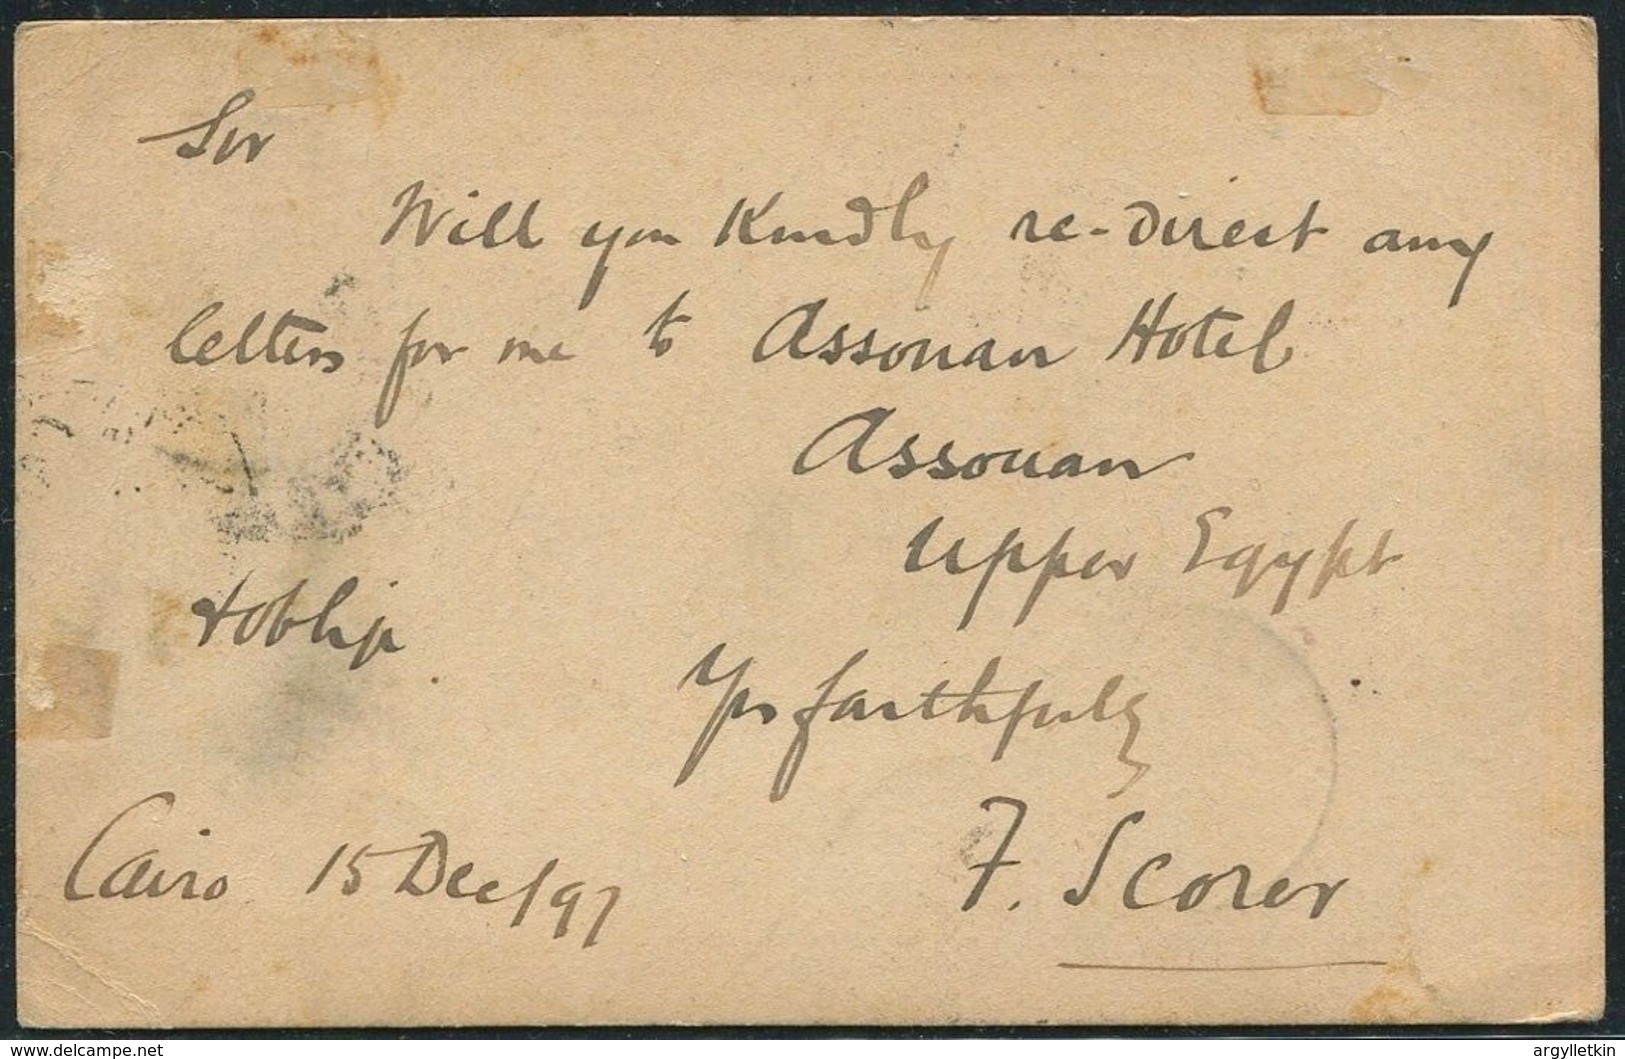 Sir
Will you Kindly re-direct any
letters for me to Assouan Hotel
Assouan
Upper Egypt
& oblige
Yrs faithfully
F. Scorer
Cairo 15 Dec/97
© delcampe.net
argylletkin